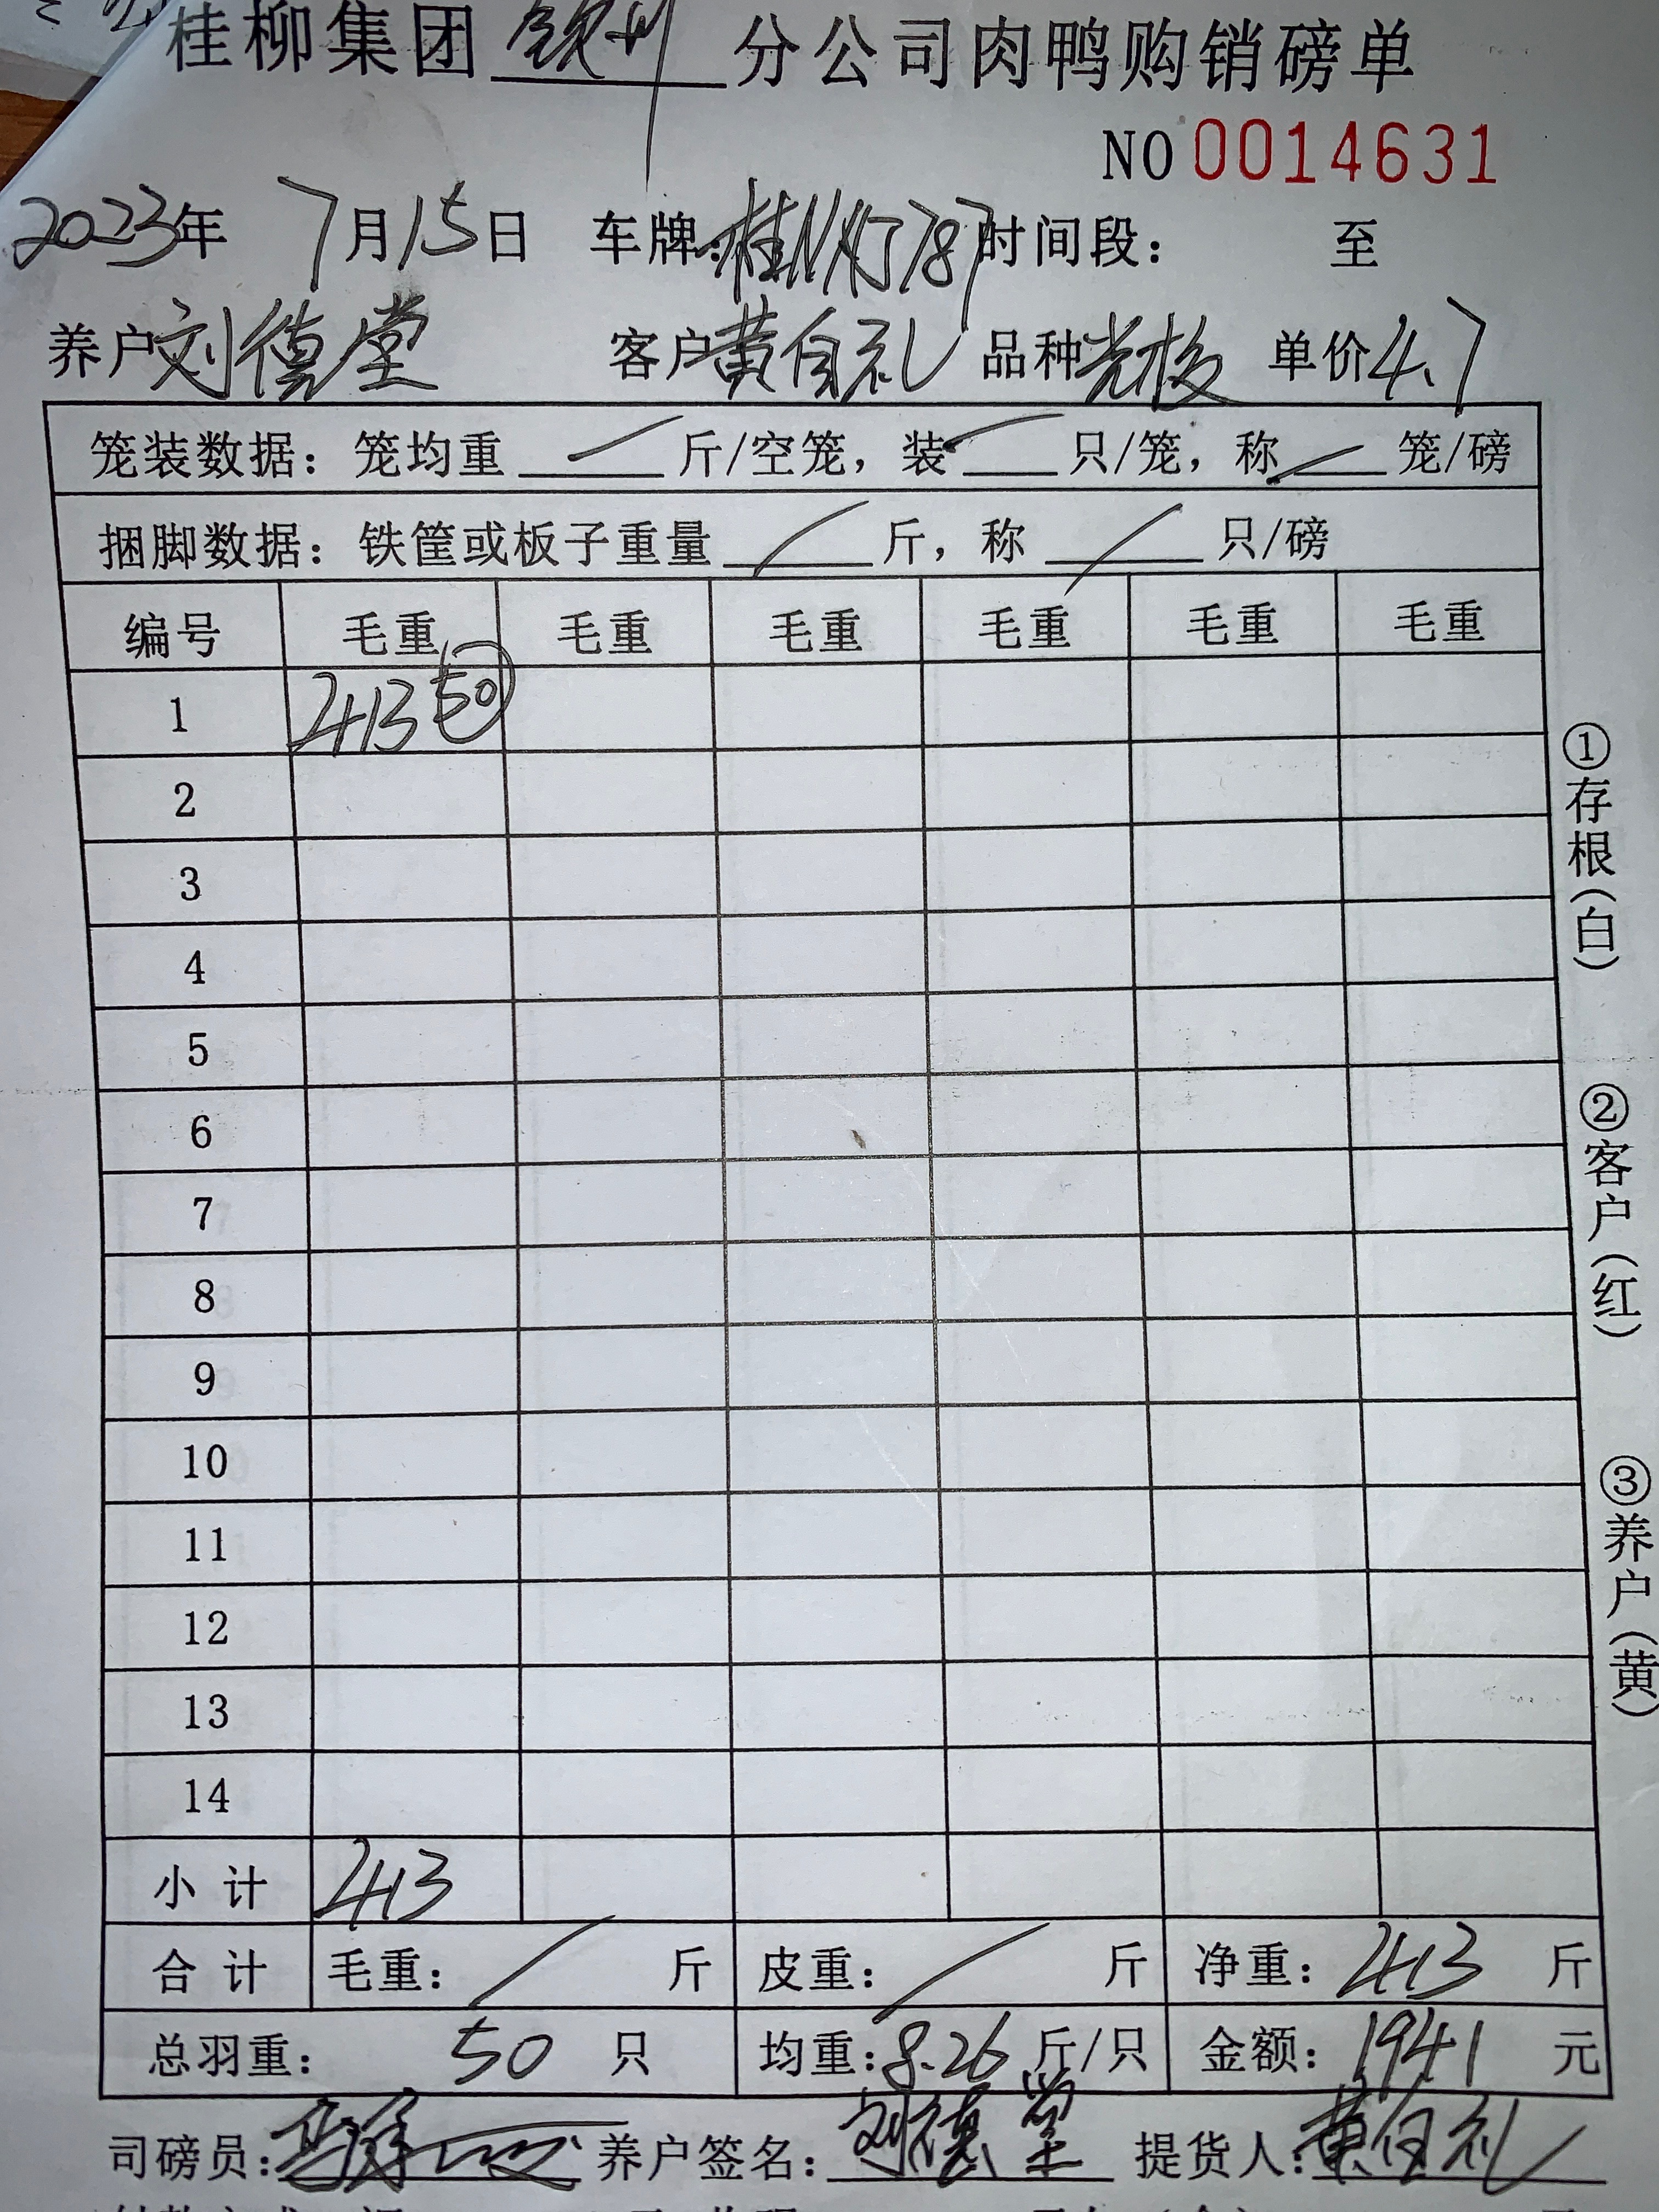 桂柳集团 钦州 分公司肉鸭购销磅单
NO 0014631
2023年 7月15日 车牌: 时间段: 至
养户 刘德堂 客户 黄自礼 品种 单价 4.7
笼装数据: 笼均重 / 斤/空笼, 装 / 只/笼, 称 / 笼/磅
捆脚数据: 铁筐或板子重量 / 斤, 称 / 只/磅
编号 毛重 毛重 毛重 毛重 毛重 毛重
1 413 50
2
3
4
5
6
7
8
9
10
11
12
13
14
小计 413
合计 毛重: / 斤 皮重: / 斤 净重: 413 斤
总羽重: 50 只 均重: 8.26 斤/只 金额: 1941 元
司磅员: 养户签名: 刘德堂 提货人: 黄自礼
①存根(白)
②客户(红)
③养户(黄)